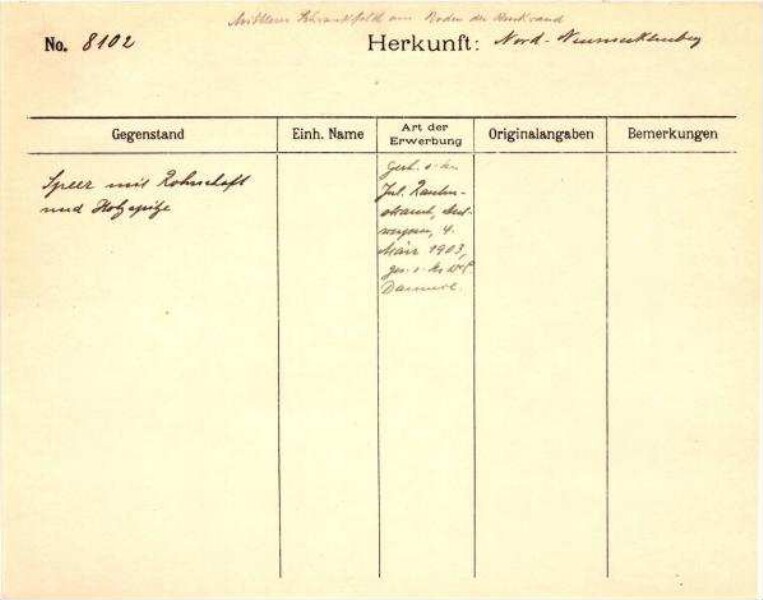 Mittleres Schrankfeld am Boden der Rückwand
No. 8102 Herkunft: Nord-Neumecklenburg
Gegenstand Einh. Name Art der Erwerbung Originalangaben Bemerkungen
Speer mit Rohrschaft
und Holzspitze
Gesch. v. Hn.
Jul. Rauten-
strauch, Ant-
werpen, 4.
März 1903,
ges. v. Hn